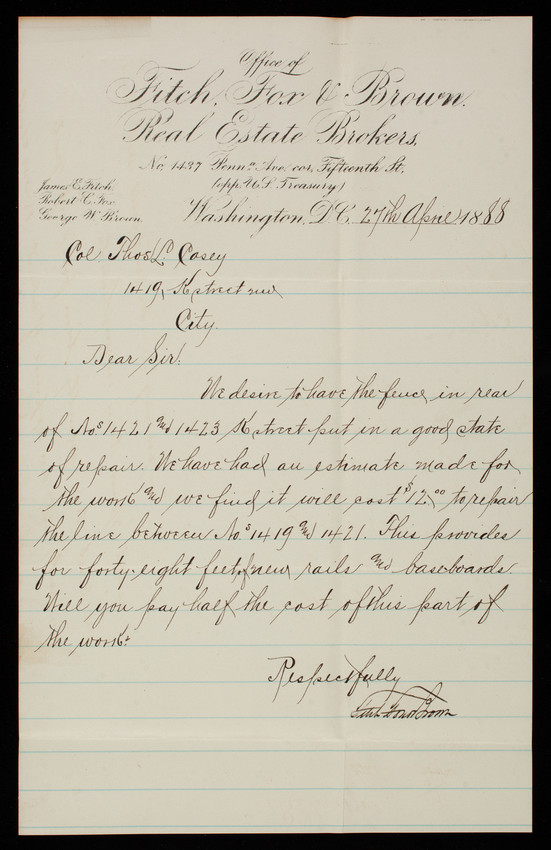 Office of
Fitch, Fox & Brown.
Real Estate Brokers,
No. 1437 Penna. Ave. cor. Fifteenth St.
(opp. U.S. Treasury)
James E. Fitch.
Robert C. Fox.
George W. Brown.
Washington, D.C. 27th Apric 1888
Col Thos L. Casey
1419 K street nw
City.
Dear Sir.
We desire to have the fence in rear
of Nos 1421 and 1423 K street put in a good state
of repair. We have had an estimate made for
the work and we find it will cost $12.00 to repair
the line between Nos 1419 and 1421. This provides
for forty-eight feet of new rails and base-boards.
Will you pay half the cost of this part of
the work?
Respectfully
Fitch Fox & Brown